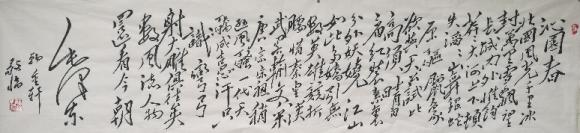 沁园春
北国风光千里冰
封万里雪飘望
长城内外惟余
莽莽大河上下顿
失滔滔山舞银蛇
原驰腊象
欲与天公试比
高须晴日
看红装素裹
分外妖娆江山
如此多娇引无
数英雄竞折
腰惜秦皇汉
武略输文采
唐宗宋祖稍
逊风骚一代天
骄成吉思汗只
识弯弓
射大雕俱往矣
数风流人物
还看今朝
毛泽东
敬临